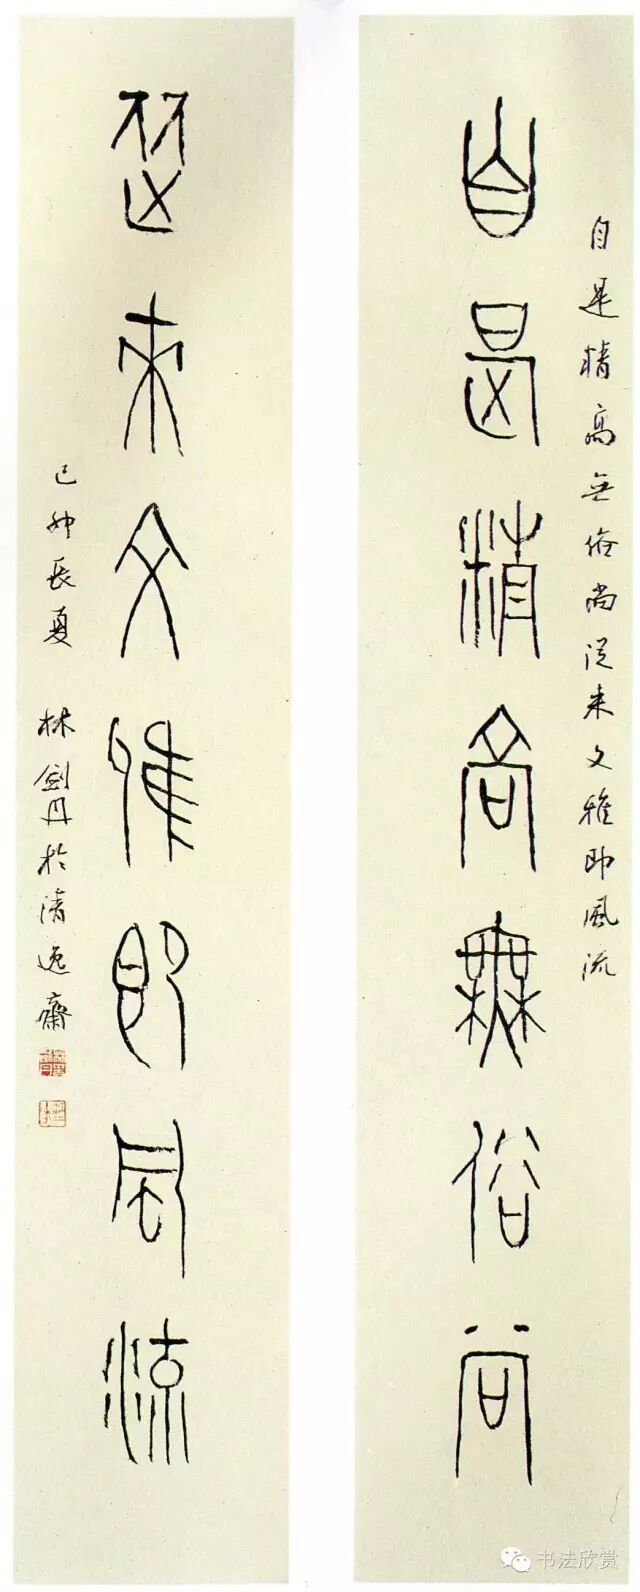 自是精高無俗尚
自是精高無俗尚從来文雅即風流
從來文雅即風流
己卯長夏 林劍丹於清逸齋
书法欣赏